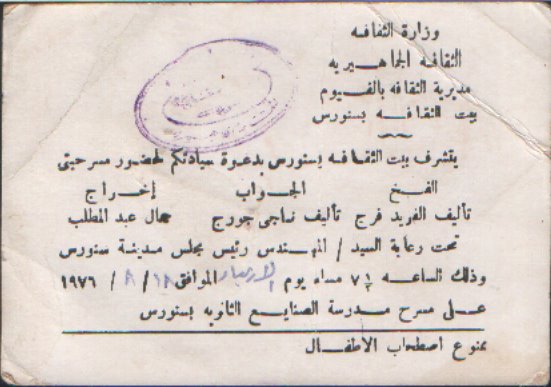 وزارة الثقافه
الثقافه الجماهيريه
مديرية الثقافه بالفيوم
بيت الثقافه بسنورس
يتشرف بيت الثقافه بسنورس بدعوة سيادتكم لحضور مسرحيتى
الفخ الجواب إخراج
تأليف الفريد فرج تأليف ناجى جورج جمال عبد المطلب
تحت رعاية السيد / المهندس رئيس مجلس مدينة سنورس
وذلك الساعه ٧½ مساء يوم الاربعاء الموافق ١٨ / ٨ / ١٩٧٦
على مسرح مدرسة الصنايع الثانويه بسنورس
ممنوع اصطحاب الأطفال